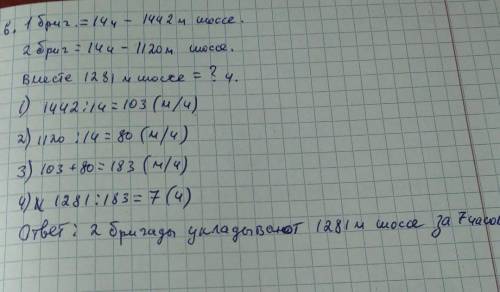 в. 1 бриг. = 14ч - 1442 м шоссе.
2 бриг = 14ч - 1120м шоссе.
Вместе 1281 м шоссе = ? ч.
1) 1442:14 = 103 (м/ч)
2) 1120 :14 = 80 (м/ч)
3) 103 + 80 = 183 (м/ч)
4) 1281 : 183 = 7 (ч)
Ответ: 2 бригады укладывают 1281 м шоссе за 7 часов